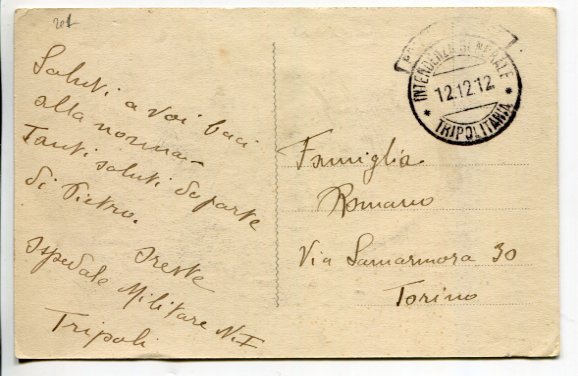 201
Saluti a voi baci
alla nonna
Tanti saluti da parte
di Pietro.
Oreste
Ospedale Militare N. I
Tripoli
INTENDENZA GENERALE
12.12.12
* TRIPOLITANIA *
Famiglia
Romano
Via Lamarmora 30
Torino